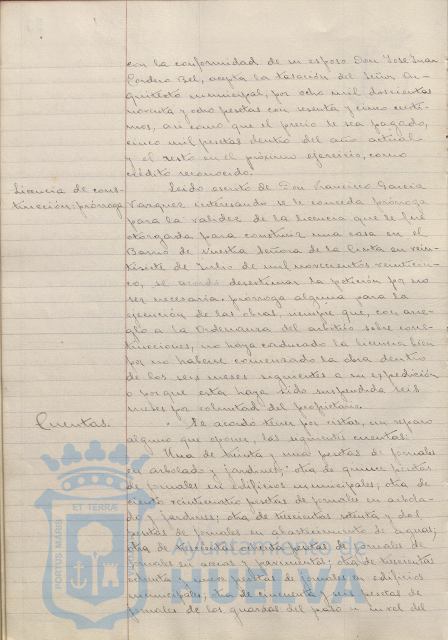 con la conformidad de su esposo Don José Juan
Cordero Bel, acepta la tasación del Señor Ar-
quitecto municipal, por ocho mil doscientas
noventa y ocho pesetas con sesenta y cinco cénti-
mos, así como que el precio le sea pagado,
cinco mil pesetas dentro del año actual
y el resto en el próximo ejercicio, como
crédito reconocido.
Licencia de cons-
trucción: prórroga
Leído escrito de Don Francisco García
Vazquez interesando se le conceda prórroga
para la validez de la licencia que le fué
otorgada para construir una casa en el
Barrio de Nuestra Señora de la Cinta en vein-
tisiete de Julio de mil novecientos veinticin-
co, se acordó desestimar la petición por no
ser necesaria prórroga alguna para la
ejecución de las obras, siempre que, con arre-
glo a la Ordenanza del arbitrio sobre cons-
trucciones, no haya caducado la licencia bien
por no haberse comenzado la obra dentro
de los seis meses siguientes a su expedición
o porque esta haya sido suspendida seis
meses por voluntad del propietario.
Cuentas.
Se acordó tener por vistas, sin reparo
alguno que oponer, las siguientes cuentas:
Una de treinta y una pesetas de jornales
en arbolado y jardines; otra de quince pesetas
de jornales en edificios municipales; otra de
ciento veinticuatro pesetas de jornales en arbola-
do y jardines; otra de trescientas setenta y dos
pesetas de jornales en abastecimiento de aguas;
otra de trescientas ochenta pesetas de jornales de
jornales en aceras y pavimentos; otra de trescientas
ochenta y nueve pesetas de jornales en edificios
municipales; otra de cincuenta y seis pesetas de
jornales de los guardas del paso a nivel del
PORTUS MARIS
ET TERRÆ
Ayuntamiento de
HUELVA